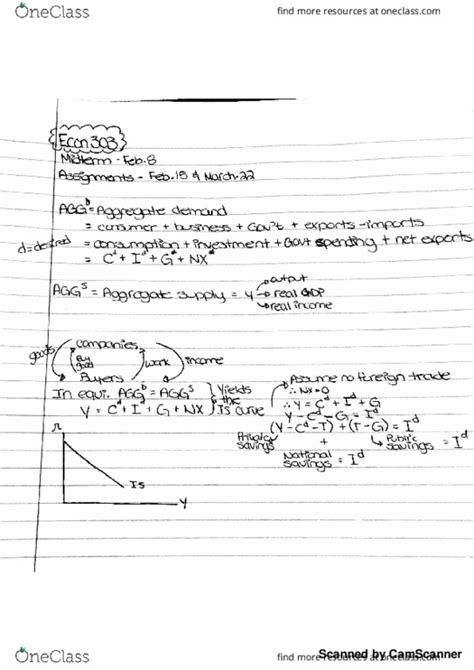 OneClass
find more resources at oneclass.com
Econ 303
Midterm - Feb. 8
Assignments - Feb. 15 & March. 22
AGGᴰ = Aggregate demand
= consumer + business + Gov't + exports - imports
d=desired
= consumption + investment + Govt spending + net exports
= Cᵈ + Iᵈ + Gᵈ + NXᵈ
AGGˢ = Aggregate supply = Y → output
→ real GDP
→ real income
goods
companies
Buy good
work
income
Buyers
In equi. AGGᴰ = AGGˢ } Yields
Y = Cᵈ + Iᵈ + G + NX } the IS curve
Assume no foreign trade
∴ NX = 0
∴ Y = Cᵈ + Iᵈ + G
Y - Cᵈ - G = Iᵈ
(Y - Cᵈ - T) + (T - G) = Iᵈ
Private savings
+
Public savings = Iᵈ
National savings = Iᵈ
r
IS
Y
OneClass
find more resources at oneclass.com
Scanned by CamScanner